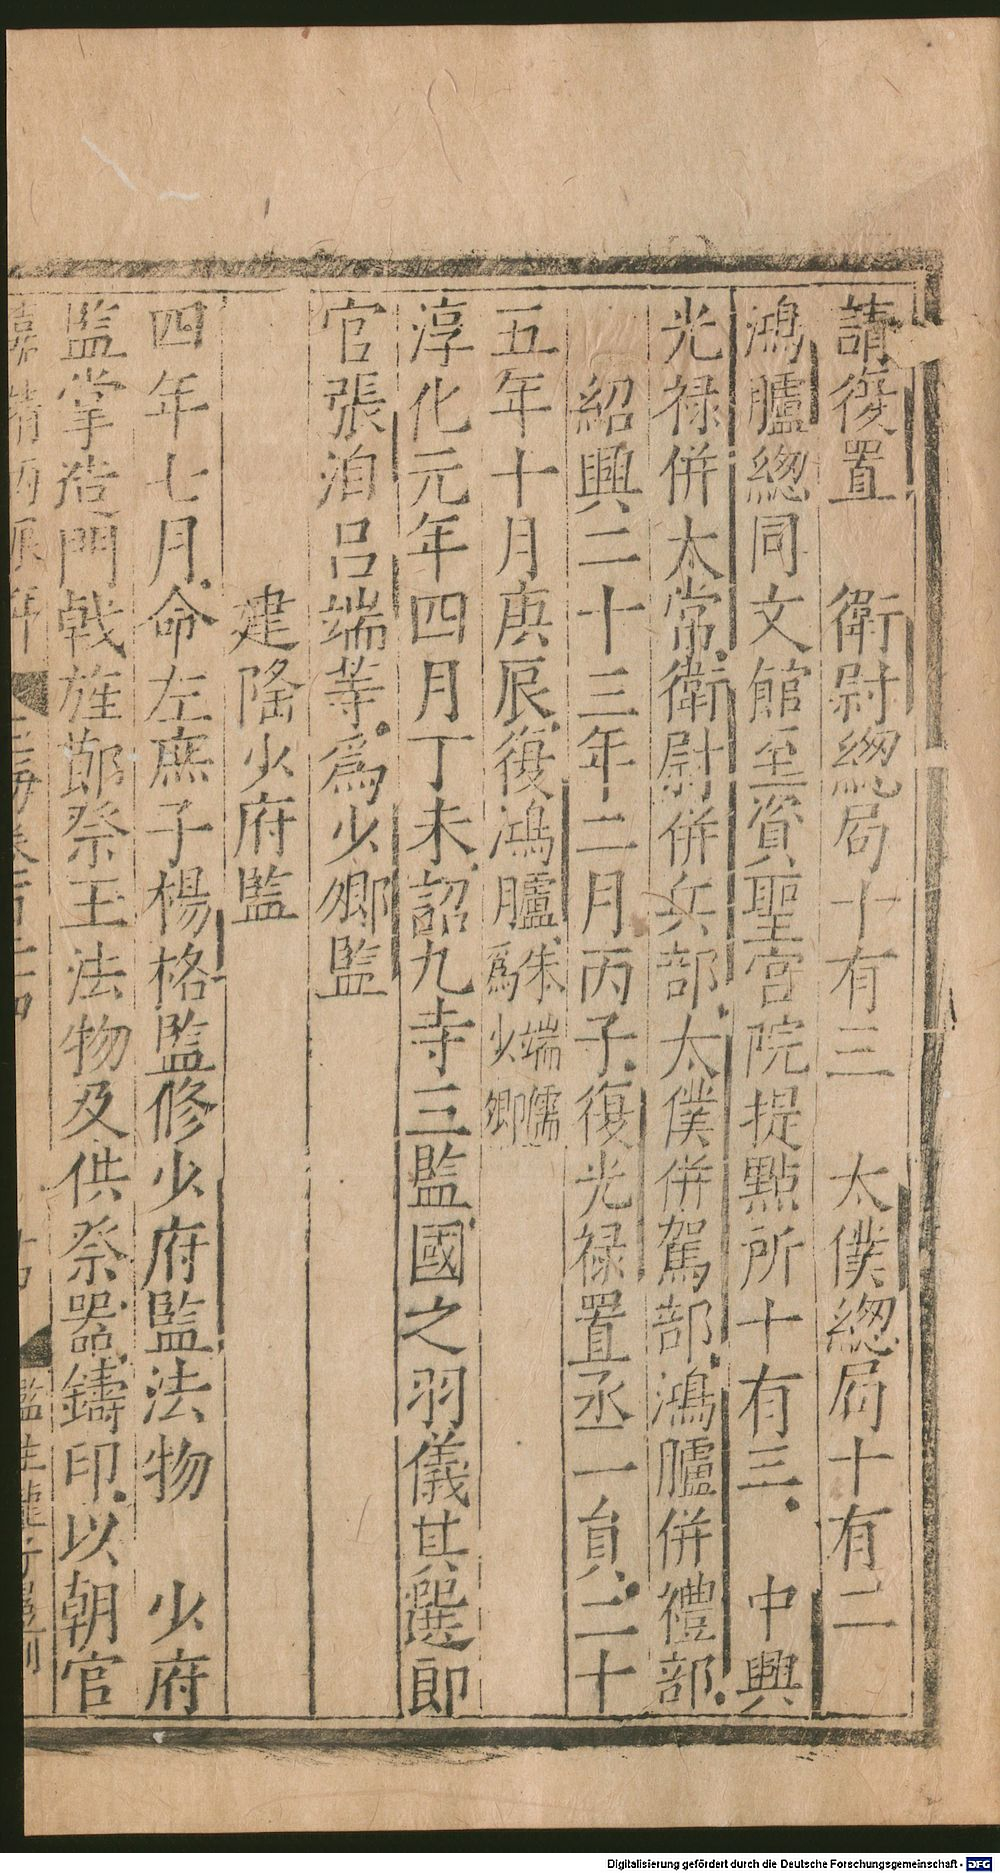 請復置　衛尉總局十有三　太僕總局十有二
鴻臚總同文館至資聖宮院提點所十有三　中興
光祿併太常衛尉併兵部太僕併駕部鴻臚併禮部
紹興二十三年二月丙子復光祿置丞一員二十
五年十月庚辰復鴻臚朱端儒為少卿
淳化元年四月丁未詔九寺三監國之羽儀其選即
官張洎呂端等為少卿監
建隆少府監
四年七月命左庶子楊格監修少府監法物　少府
監掌造門戟旌節祭玉法物及供祭器鑄印以朝官
嘉靖丙辰年
監生龍
Digitalisierung gefördert durch die Deutsche Forschungsgemeinschaft - DFG